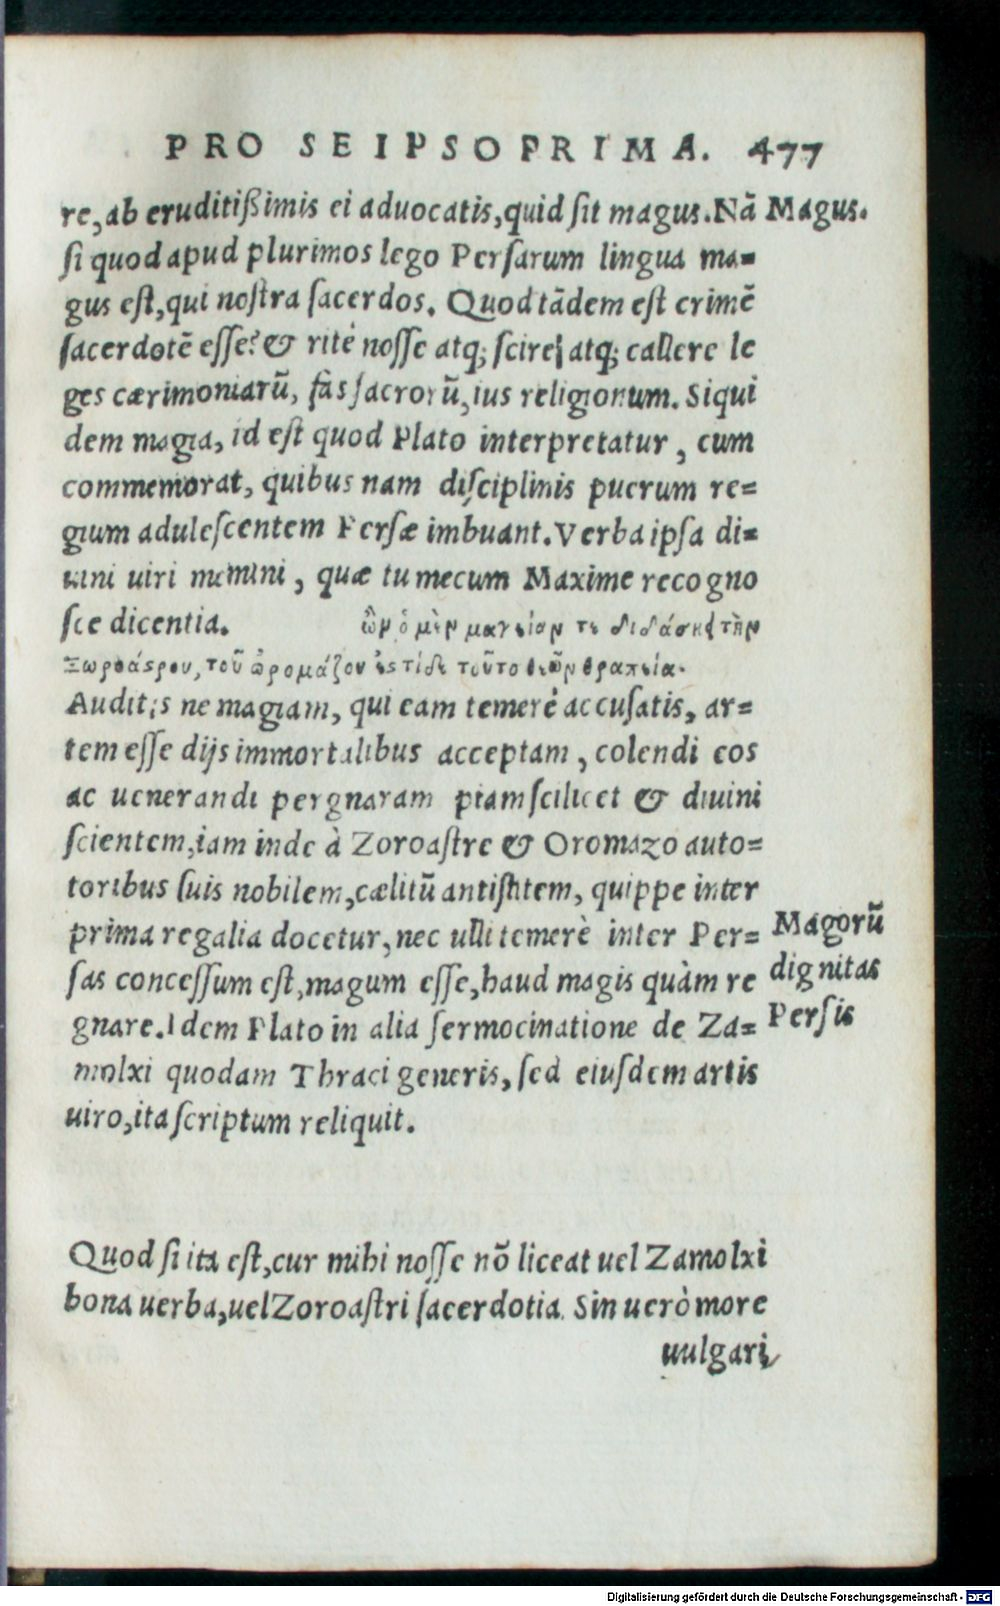 PRO SEIPSO PRIMA. 477
re, ab eruditißimis ei aduocatis, quid ſit magus. Nã
Magus.
ſi quod apud plurimos lego Perſarum lingua ma=
gus eſt, qui noſtra ſacerdos. Quod tãdem eſt crimẽ
ſacerdotẽ eſſe? & ritè noſſe atq; ſcire, atq; callere le
ges cærimoniarũ, fas ſacrorũ, ius religionum. Siqui
dem magia, id eſt quod Plato interpretatur, cum
commemorat, quibus nam diſciplinis puerum re=
gium aduleſcentem Perſæ imbuant. Verba ipſa di=
uini uiri memini, quæ tu mecum Maxime recogno
ſce dicentia. ὧν ὁ μὲν μαγείαν τε διδάσκει τὴν
Ζωροάστρου, τοῦ ὠρομάζου ἐς τίδε τοῦτο θεῶν θραπεία.
Auditis ne magiam, qui eam temerè accuſatis, ar=
tem eſſe dijs immortalibus acceptam, colendi eos
ac uenerandi pergnaram piam ſcilicet & diuini
ſcientem, iam inde à Zoroaſtre & Oromazo auto=
toribus ſuis nobilem, cælitũ antiſtitem, quippe inter
prima regalia docetur, nec ulli temerè inter Per=
Magorũ
ſas conceſſum eſt, magum eſſe, haud magis quàm re
dignitas
gnare. Idem Plato in alia ſermocinatione de Za=
Perſis
molxi quodam Thraci generis, ſed eiuſdem artis
uiro, ita ſcriptum reliquit.
Quod ſi ita eſt, cur mihi noſſe nõ liceat uel Zamolxi
bona uerba, uel Zoroaſtri ſacerdotia. Sin uerò more
uulgari,
Digitalisierung gefördert durch die Deutsche Forschungsgemeinschaft - DFG